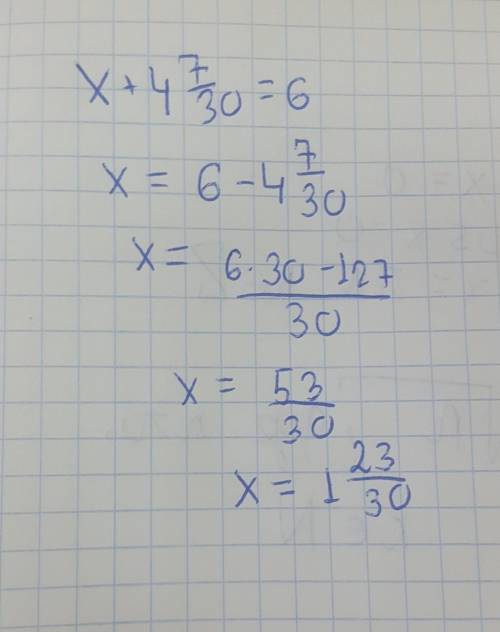 x + 4 7/30 = 6
x = 6 - 4 7/30
x = (6·30 - 127)/30
x = 53/30
x = 1 23/30